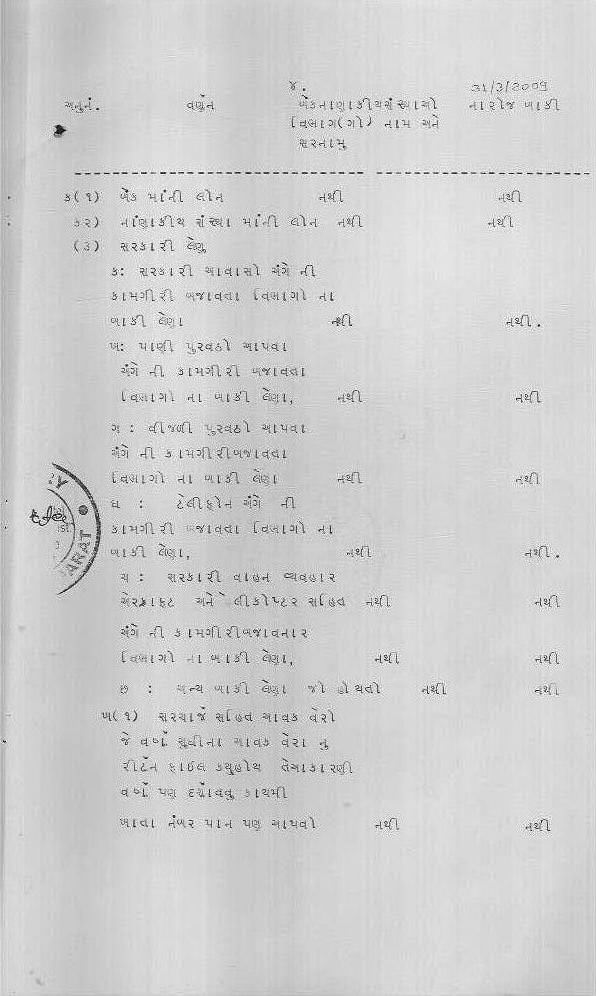 ૪.
31/3/2009
અનુનં. વર્ણન બેંકનાણાકીયસંસ્થાઓ નારોજ બાકી
વિભાગ(ગો) નામ અને
સરનામુ
ક(૧) બેંક માંની લોન નથી નથી
ક૨) નાંણાકીય સંસ્થા માંની લોન નથી નથી
(૩) સરકારી લેણુ
ક: સરકારી આવાસો અંગે ની
કામગીરી બજાવતા વિભાગો ના
બાકી લેણા નથી નથી.
ખ: પાણી પુરવઠો આપવા
અંગે ની કામગીરી બજાવતા
વિભાગો ના બાકી લેણા, નથી નથી
ગ : વીજળી પુરવઠો આપવા
અંગે ની કામગીરીબજાવતા
વિભાગો ના બાકી લેણા નથી નથી
ઘ : ટેલીફોન અંગે ની
કામગીરી બજાવતા વિભાગો ના
બાકી લેણા, નથી નથી.
ચ : સરકારી વાહન વ્યવહાર
એરક્રાફટ અને લીકોપ્ટર સહિત નથી નથી
અંગે ની કામગીરીબજાવનાર
વિભાગો ના બાકી લેણા, નથી નથી
છ : અન્ય બાકી લેણા જો હોયતો નથી નથી
ખ(૧) સરચાર્જ સહિત આવક વેરો
જે વર્ષો સુધીના આવક વેરા નુ
રીટર્ન ફાઈલ કર્યુહોય તેગાકારણી
વર્ષો પણ દર્શાવવુ કાયમી
ખાતા નંબર પાન પણ આપવો નથી નથી
ARAT